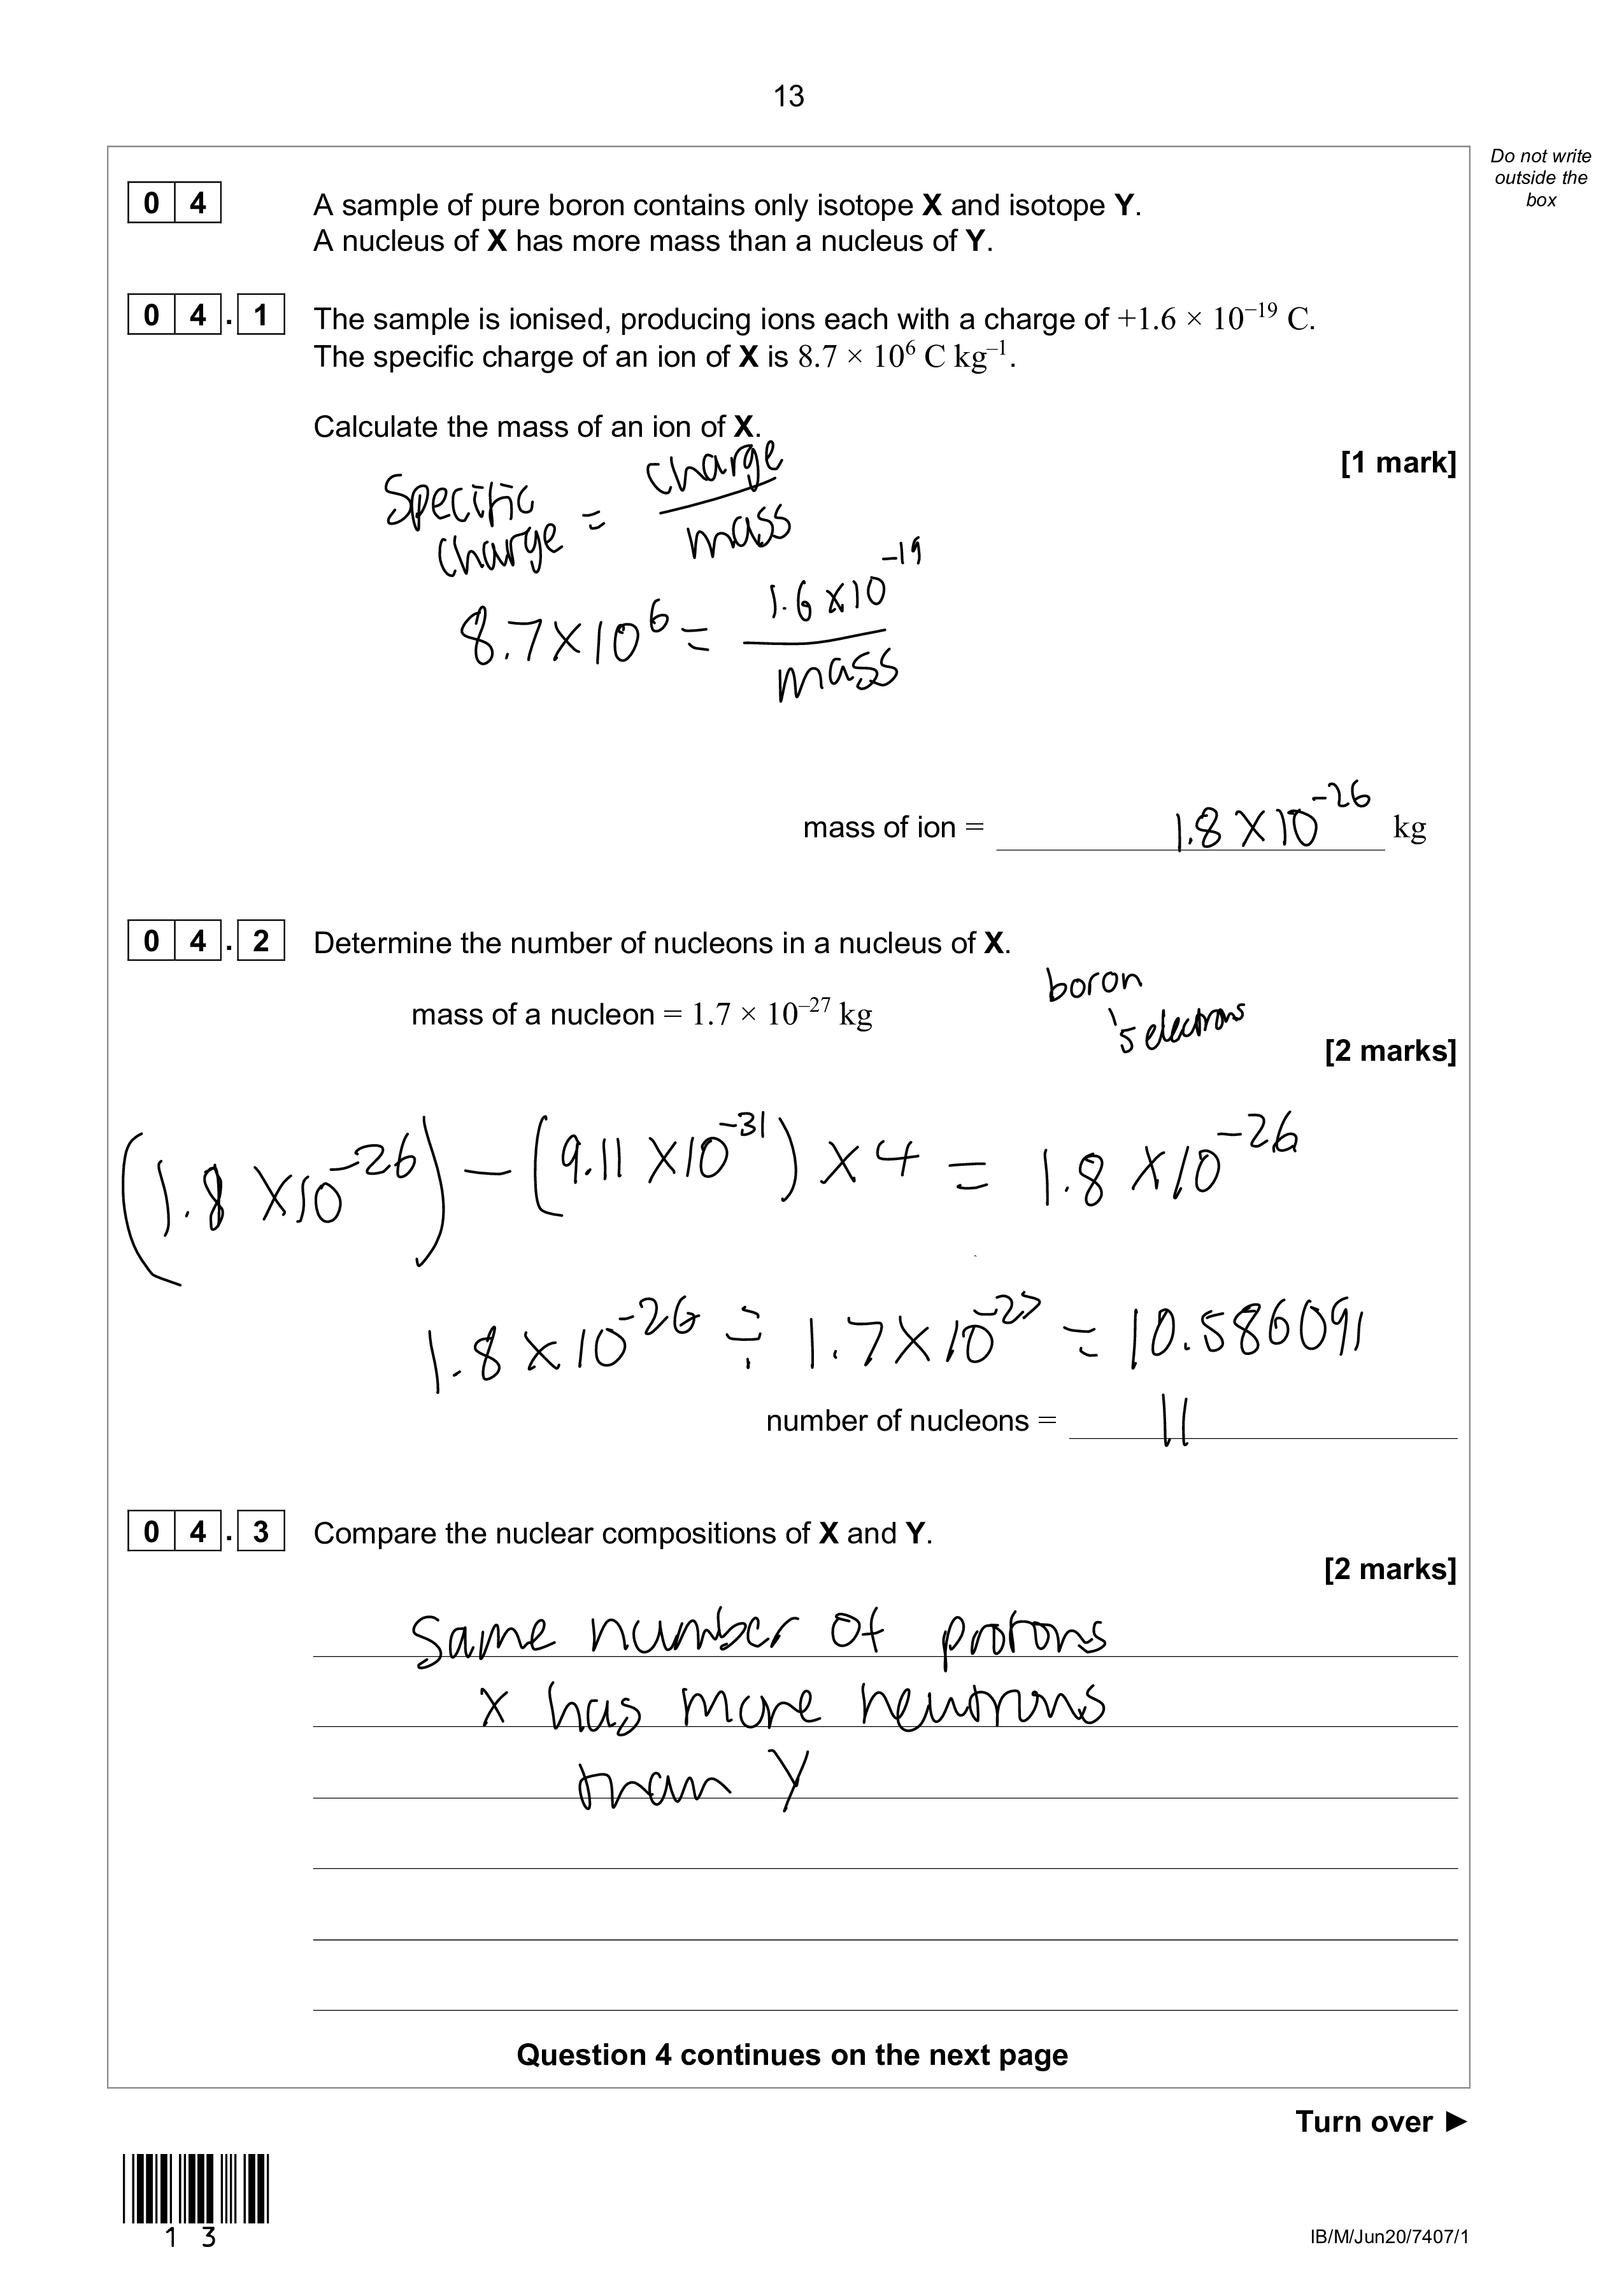 13
Do not write
outside the
box
0 4 A sample of pure boron contains only isotope X and isotope Y.
A nucleus of X has more mass than a nucleus of Y.
0 4 . 1 The sample is ionised, producing ions each with a charge of +1.6 × 10⁻¹⁹ C.
The specific charge of an ion of X is 8.7 × 10⁶ C kg⁻¹.
Calculate the mass of an ion of X.
[1 mark]
Specific charge = charge / mass
8.7 × 10⁶ = 1.6 × 10⁻¹⁹ / mass
mass of ion = 1.8 × 10⁻²⁶ kg
0 4 . 2 Determine the number of nucleons in a nucleus of X.
boron
mass of a nucleon = 1.7 × 10⁻²⁷ kg
5 electrons
[2 marks]
(1.8 × 10⁻²⁶) − (9.11 × 10⁻³¹) × 4 = 1.8 × 10⁻²⁶
1.8 × 10⁻²⁶ ÷ 1.7 × 10⁻²⁷ = 10.586091
number of nucleons = 11
0 4 . 3 Compare the nuclear compositions of X and Y.
[2 marks]
Same number of protons
X has more neutrons
than Y
Question 4 continues on the next page
Turn over ►
1 3
IB/M/Jun20/7407/1